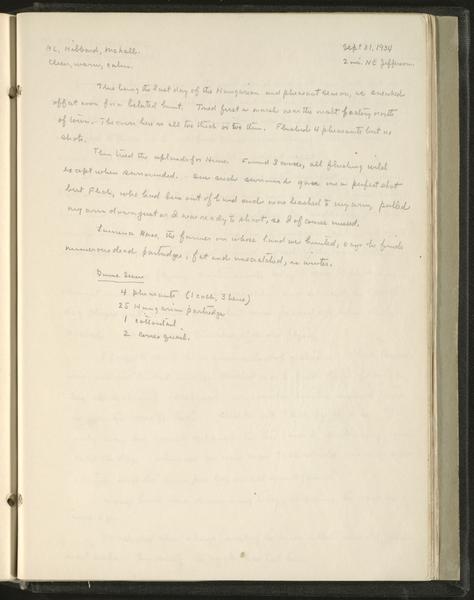 AL, Hibbard, McCall. Sept 21, 1934
Clear, warm, calm. 2 mi. NE Jefferson.
This being the last day of the Hungarian and pheasant season, we sneaked
off at noon for a belated hunt. Tried first a marsh near the malt factory north
of town. The cover here is all too thick or too thin. Flushed 4 pheasants but no
shots.
Then tried the uplands for Huns. Found 3 coveys, all flushing wild
except when surrounded. One such surround gave me a perfect shot
but Flick, who had been out of hand and was leashed to my arm, pulled
my arm down just as I was ready to shoot, so I of course missed.
the farmer on whose land we hunted, says he finds
numerous dead partridges, fat and unscratched, in winter.
Game Seen
4 pheasants (1 cock, 3 hens)
25 Hungarian partridge
1 cottontail
2 quail.